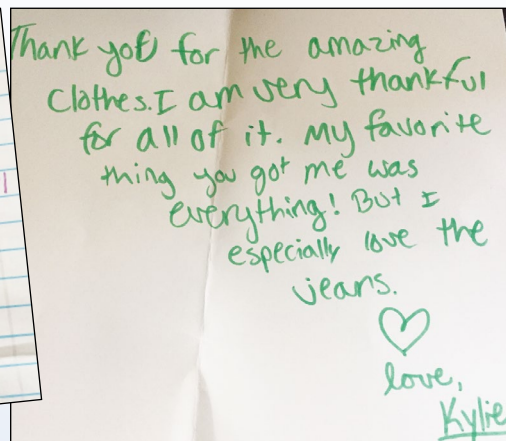 Thank you for the amazing
clothes. I am very thankful
for all of it. My favorite
thing you got me was
everything! But I
especially love the
jeans.
love,
Kylie